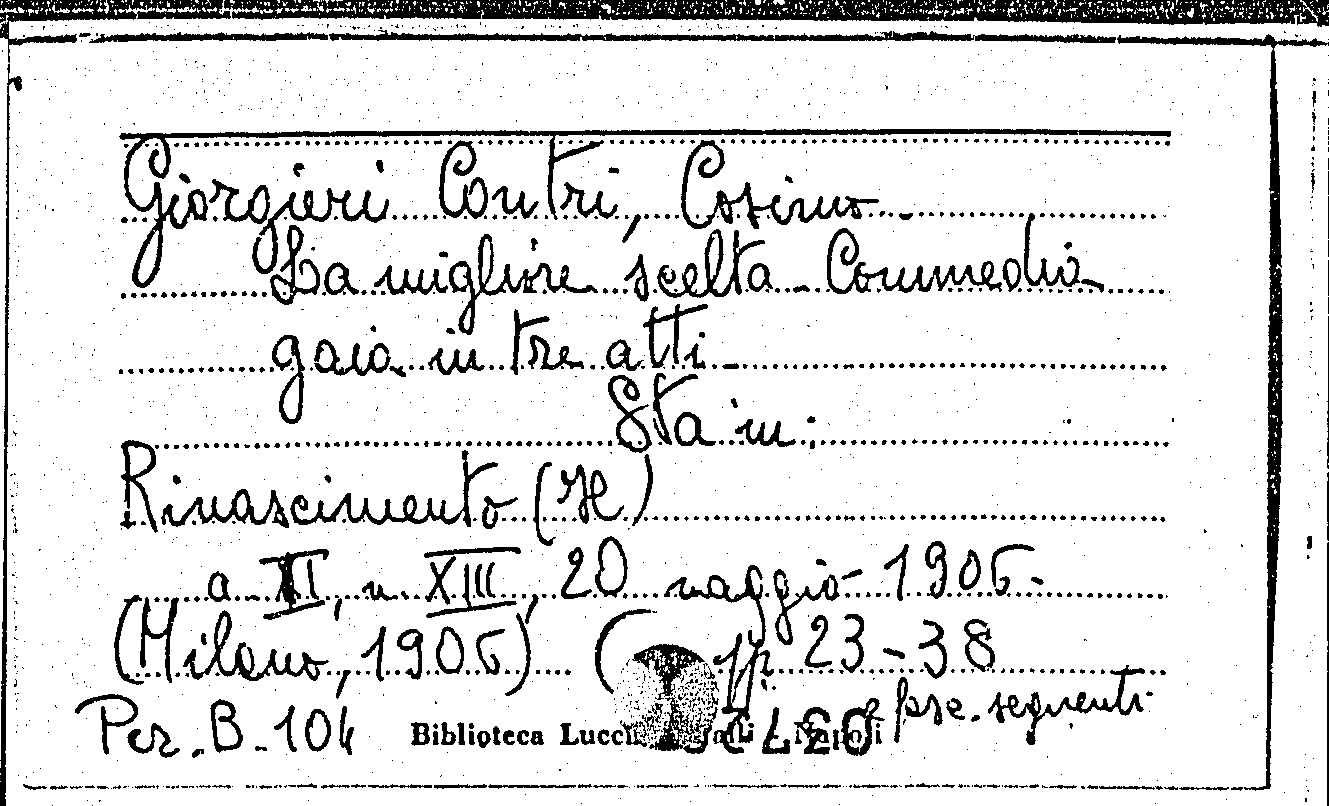 Giorgieri Contri, Cosimo.
La migliore scelta. Commedia
gaia in tre atti.
Sta in:
Rinascimento (Il)
a. II, n. XIII, 20 maggio 1906.
(Milano, 1906) ( pp. 23-38
e fasc. seguenti
Per. B. 104
Biblioteca Lucchesi Palli - Napoli